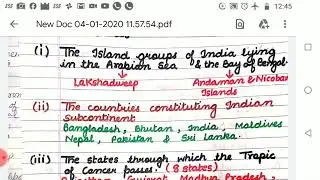 12:45
New Doc 04-01-2020 11.57.54.pdf
(i) The Island groups of India lying
in the Arabian Sea & the Bay of Bengal
Lakshadweep Andaman & Nicobar
Islands
(ii) The countries constituting Indian
subcontinent
Bangladesh, Bhutan, India, Maldives
Nepal, Pakistan & Sri Lanka.
(iii) The states through which the Tropic
of Cancer passes. (8 states)
Gujarat, Madhya Pradesh,